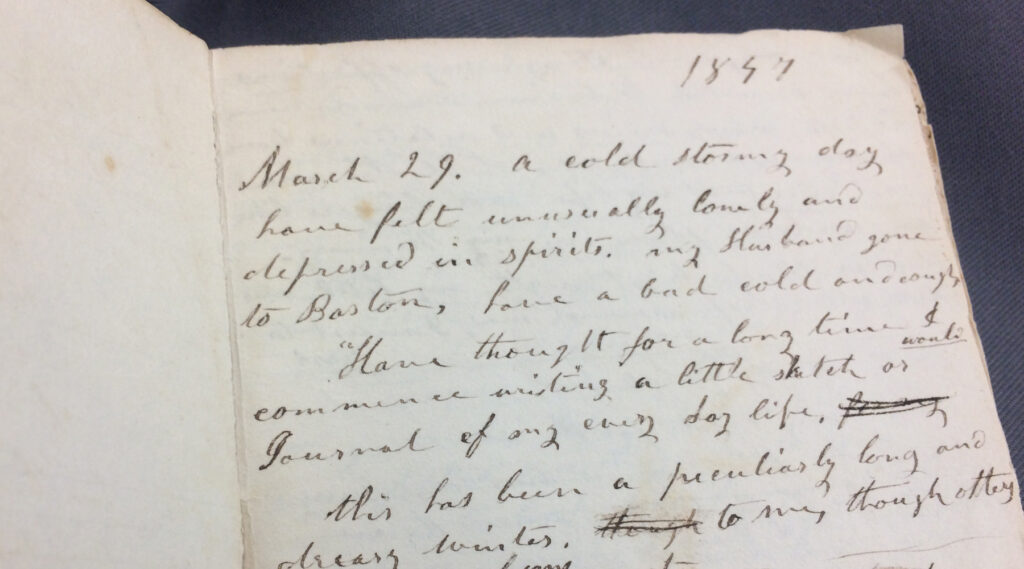 1857
March 29. a cold stormy day
have felt unusually lonely and
depressed in spirits. my Husband gone
to Boston, have a bad cold and cough
"Have thought for a long time I
would
commence writing a little sketch or
Journal of my every day life.
this has been a peculiarly long and
dreary winter. though to me, though others
been